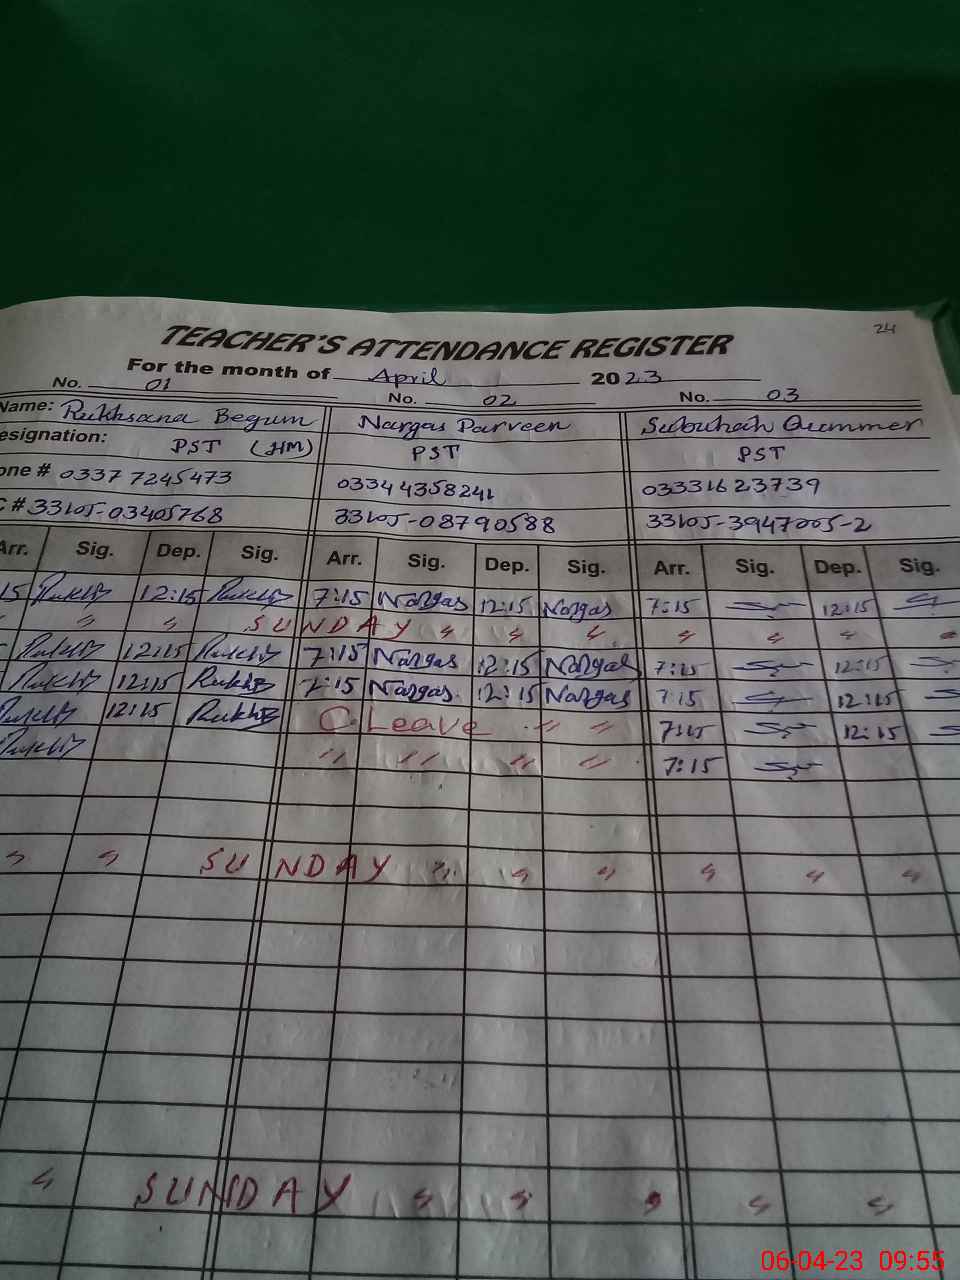 24
TEACHER'S ATTENDANCE REGISTER
For the month of April 2023
No. 01 No. 02 No. 03
Name: Rukhsana Begum Nargas Parveen Subuhah Qummer
esignation: PST (HM) PST PST
one # 0337 7245473 03344358241 03331623739
C # 33105-03405768 33105-08790588 33105-3947005-2
Arr. Sig. Dep. Sig. Arr. Sig. Dep. Sig. Arr. Sig. Dep. Sig.
15 12:15 7:15 Nargas 12:15 Nargas 7:15 12:15
" " " SUNDAY " " " " " "
12:15 7:15 Nargas 12:15 Nargas 7:15 12:15
12:15 7:15 Nargas 12:15 Nargas 7:15 12:15
12:15 C. Leave " " 7:15 12:15
" " " " 7:15
" " SUNDAY " " " " " "
" SUNDAY " " " " "
06-04-23 09:55